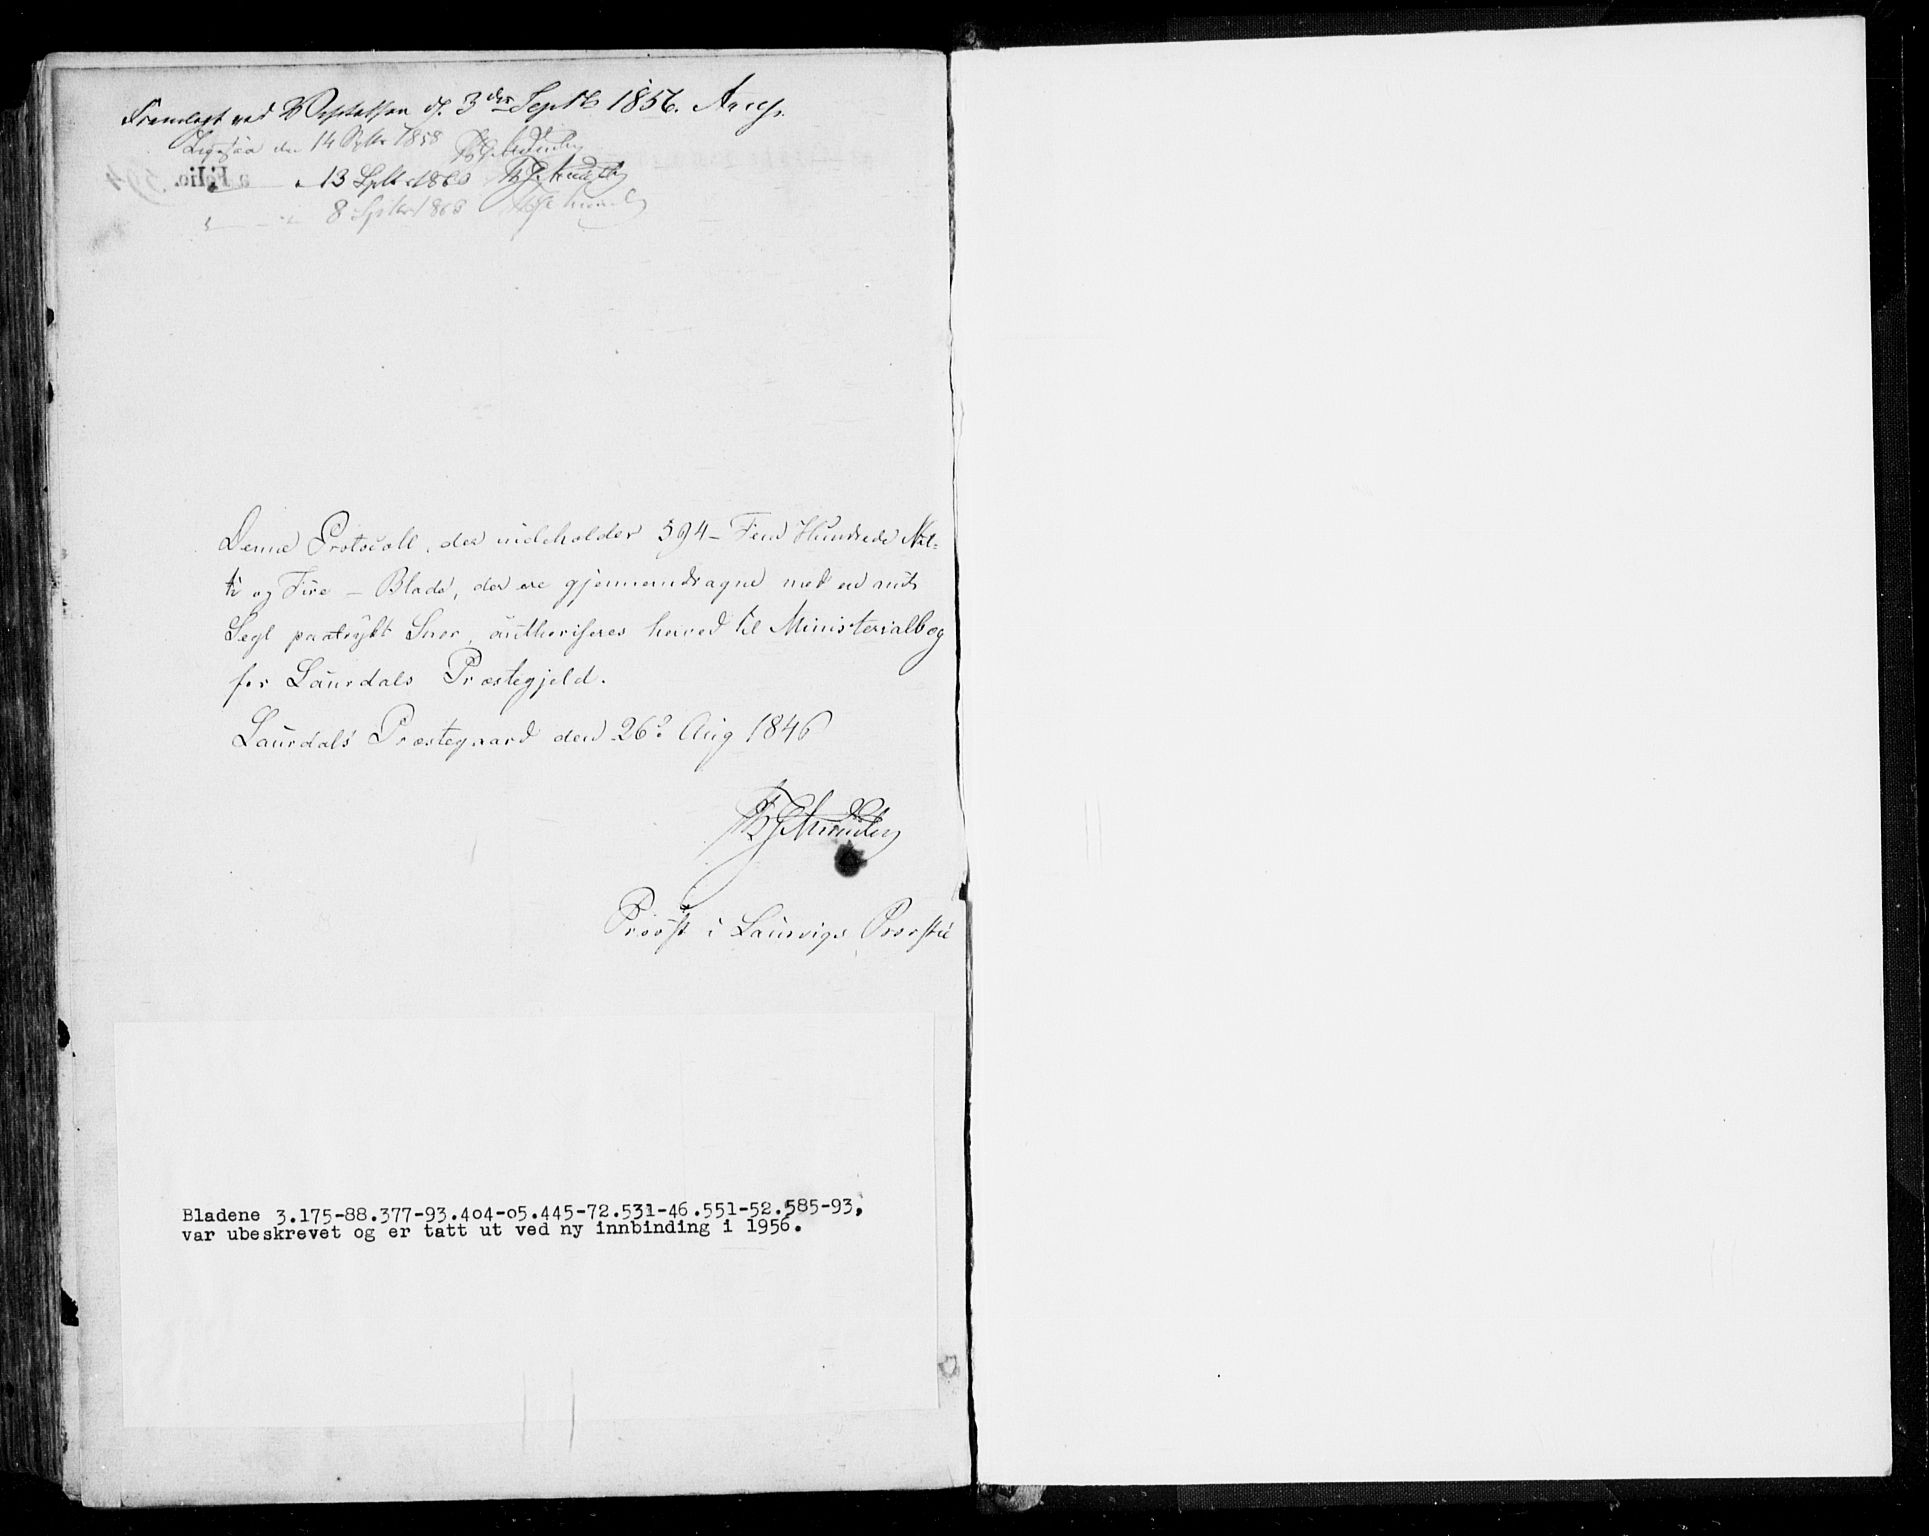 Fremlagt ved Visitatsen d. 3die Septb 1856. Arup.
Ligesaa den 14 Septbr 1858
13 Septb 1860
8 Septbr 1863
a Folio. 594
Denne Protocoll, der indeholder 594 – Fem Hundrede Nit-
ti og Fire – Blade, der ere gjennemdragne med en mit
Segl paatrykt Snor, authoriseres herved til Ministerialbog
for Laurdals Præstegjeld.
Laurdals Præstegaard den 26d Aug 1846
Provst i Laurvigs Provstie
Bladene 3.175-88.377-93.404-05.445-72.531-46.551-52.585-93,
var ubeskrevet og er tatt ut ved ny innbinding i 1956.